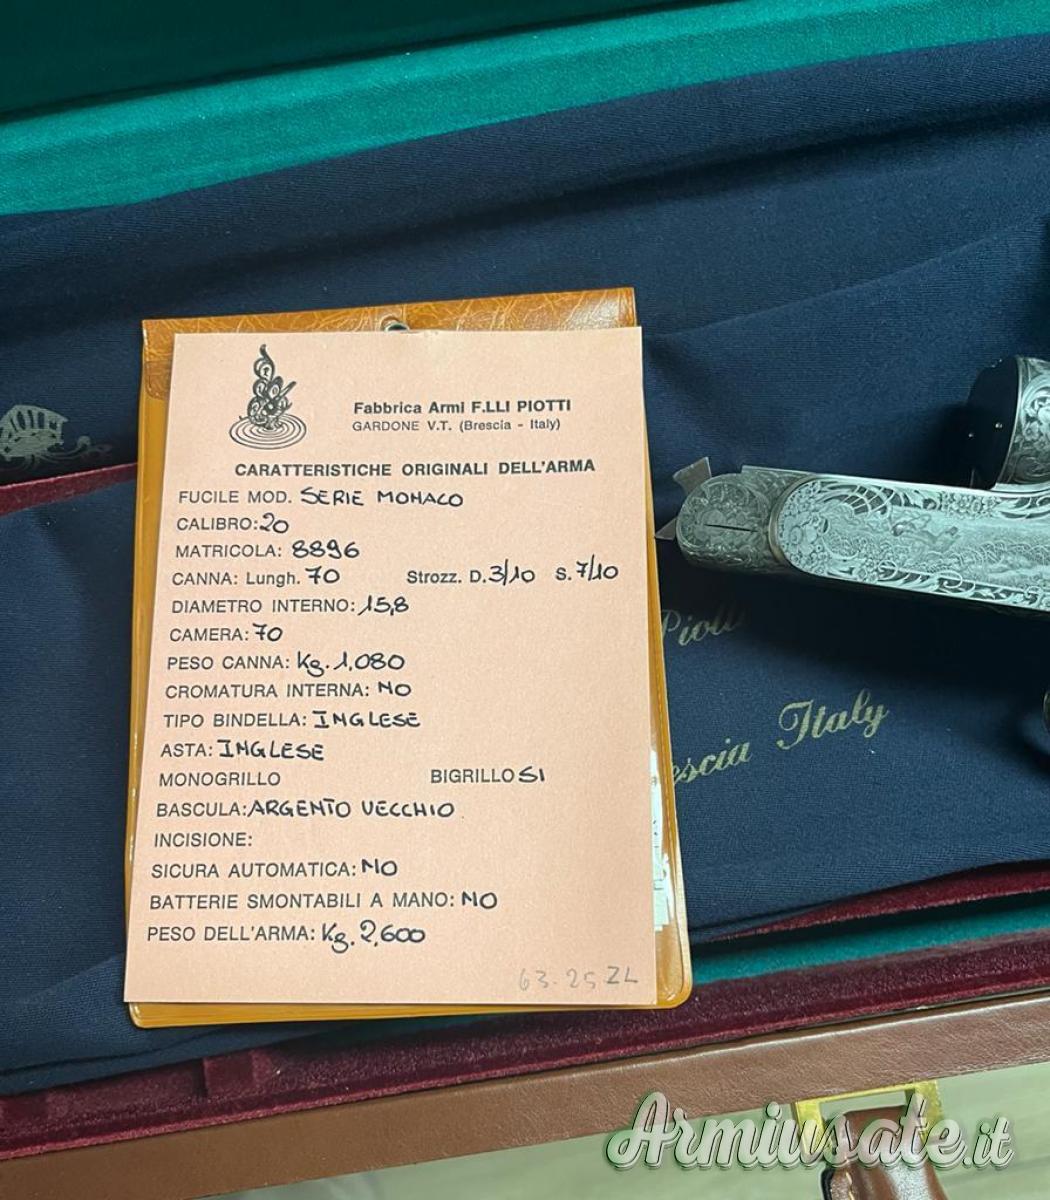 Fabbrica Armi F.LLI PIOTTI
GARDONE V.T. (Brescia - Italy)
CARATTERISTICHE ORIGINALI DELL'ARMA
FUCILE MOD. SERIE MONACO
CALIBRO: 20
MATRICOLA: 8896
CANNA: Lungh. 70 Strozz. D. 3/10 S. 7/10
DIAMETRO INTERNO: 15,8
CAMERA: 70
PESO CANNA: Kg. 1,080
CROMATURA INTERNA: NO
TIPO BINDELLA: INGLESE
ASTA: INGLESE
MONOGRILLO BIGRILLO SI
BASCULA: ARGENTO VECCHIO
INCISIONE:
SICURA AUTOMATICA: NO
BATTERIE SMONTABILI A MANO: NO
PESO DELL'ARMA: Kg. 2,600
63.25 ZL
Piotti
escia Italy
Armiusate.it